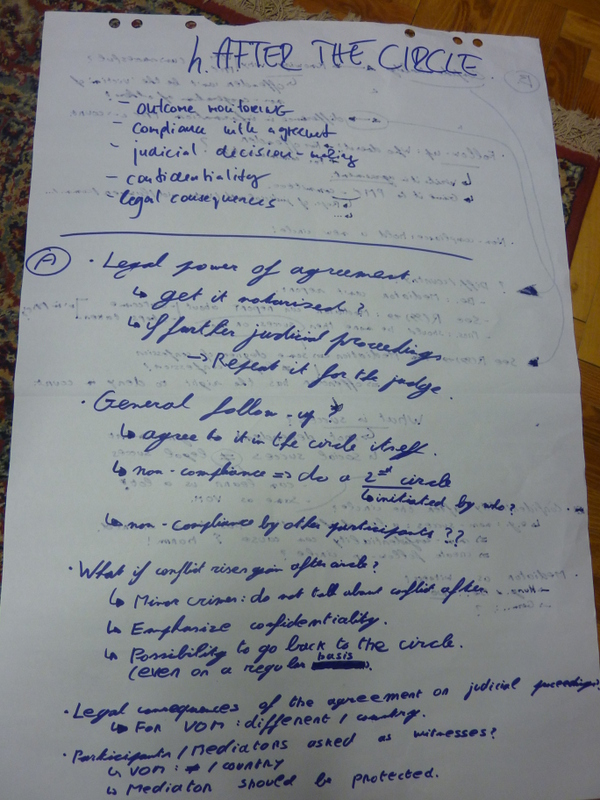 h. AFTER THE CIRCLE
- outcome monitoring
- compliance with agreement
- judicial decision-making
- confidentiality
- legal consequences
A
• Legal power of agreement
↳ get it notarized?
↳ if further judicial proceedings
→ Repeat it for the judge.
• General follow-up *
↳ agree to it in the circle itself.
↳ non-compliance => do a 2nd circle
↳ initiated by who?
↳ non-compliance by other participants??
• What if conflict rises again after circle?
↳ Minor crimes: do not talk about conflict after
↳ Emphasize confidentiality.
↳ Possibility to go back to the circle.
(even on a regular basis).
• Legal consequences of the agreement on judicial proceedings?
↳ For VOM: different / country.
• Participants / Mediators asked as witnesses?
↳ VOM: ≠ / country
↳ Mediator should be protected.